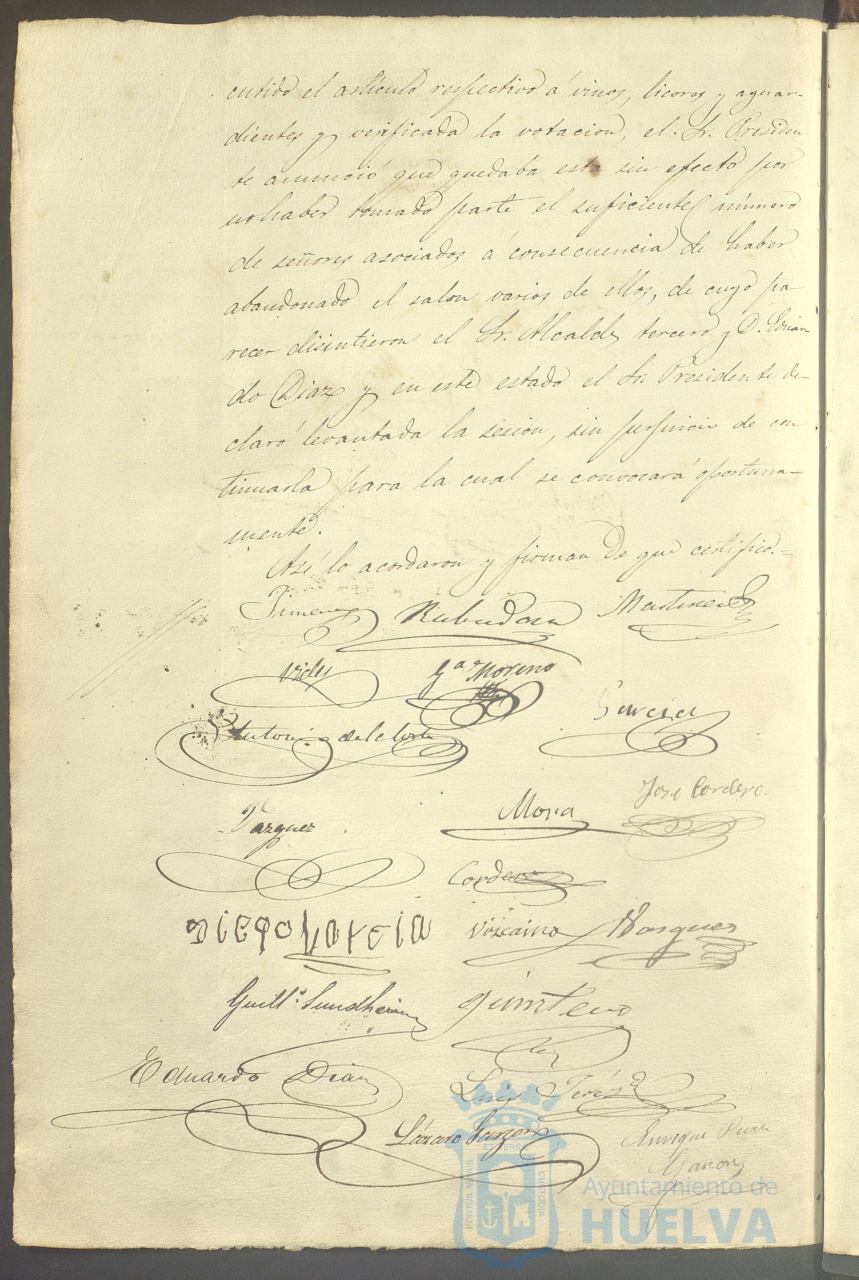 cutido el artículo respectivo á vinos, licores y aguar-
dientes y verificada la votacion, el Sr. Presiden
te anunció que quedaba esta sin efecto por
no haber tomado parte el suficiente número
de señores asociados á consecuencia de haber
abandonado el salon varios de ellos, de cuyo pa-
recer disintieron el Sr. Alcalde tercero y D. Eduar
do Diaz y en este estado el Sr. Presidente de-
claró levantada la sesion, sin perjuicio de con
tinuarla para la cual se convocará oportuna-
mente.
Así lo acordaron y firman de que certifico.=
Martinez
Vides Ga Moreno
Garcia
Antonio de la Corte
José Cordero.
Vazquez Mora
Cordero
DIEGO GARCIA Vizcaino Vazquez
Guillo. Sundheim Quintero
Eduardo Diaz
Luis
Lázaro Garzon
Enrique
PORTUS MARIS ET TERRAE CUSTODIA
Ayuntamiento de
HUELVA